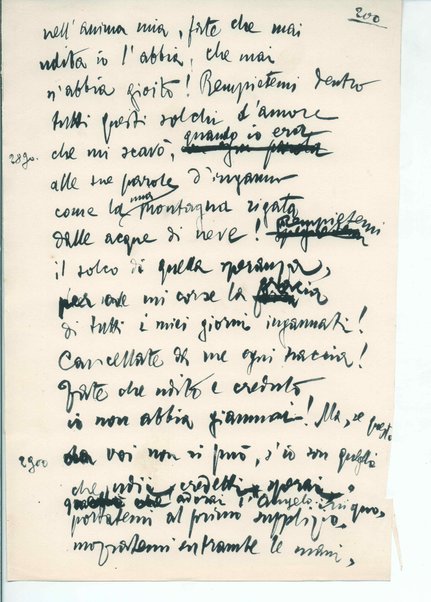 200
nell'anima mia, fate che mai
udita io l'abbia, che mai
n'abbia gioito! Riempietemi dentro
tutti questi solchi d'amore
2890. che mi scavò, quando io era
alle sue parole d'inganno
come la mia montagna rigata
dalle acque di neve! Riempietemi
il solco di quella speranza,
per ove mi corse la grazia
di tutti i miei giorni ingannati!
Cancellate da me ogni traccia!
Fate che udito e creduto
io non abbia giammai! Ma, se questo
2900 da voi non si può, s'io son quella
che udii, credetti, sperai,
che adorai l'Angelo iniquo,
portatemi al primo supplizio,
mozzatemi entrambe le mani,